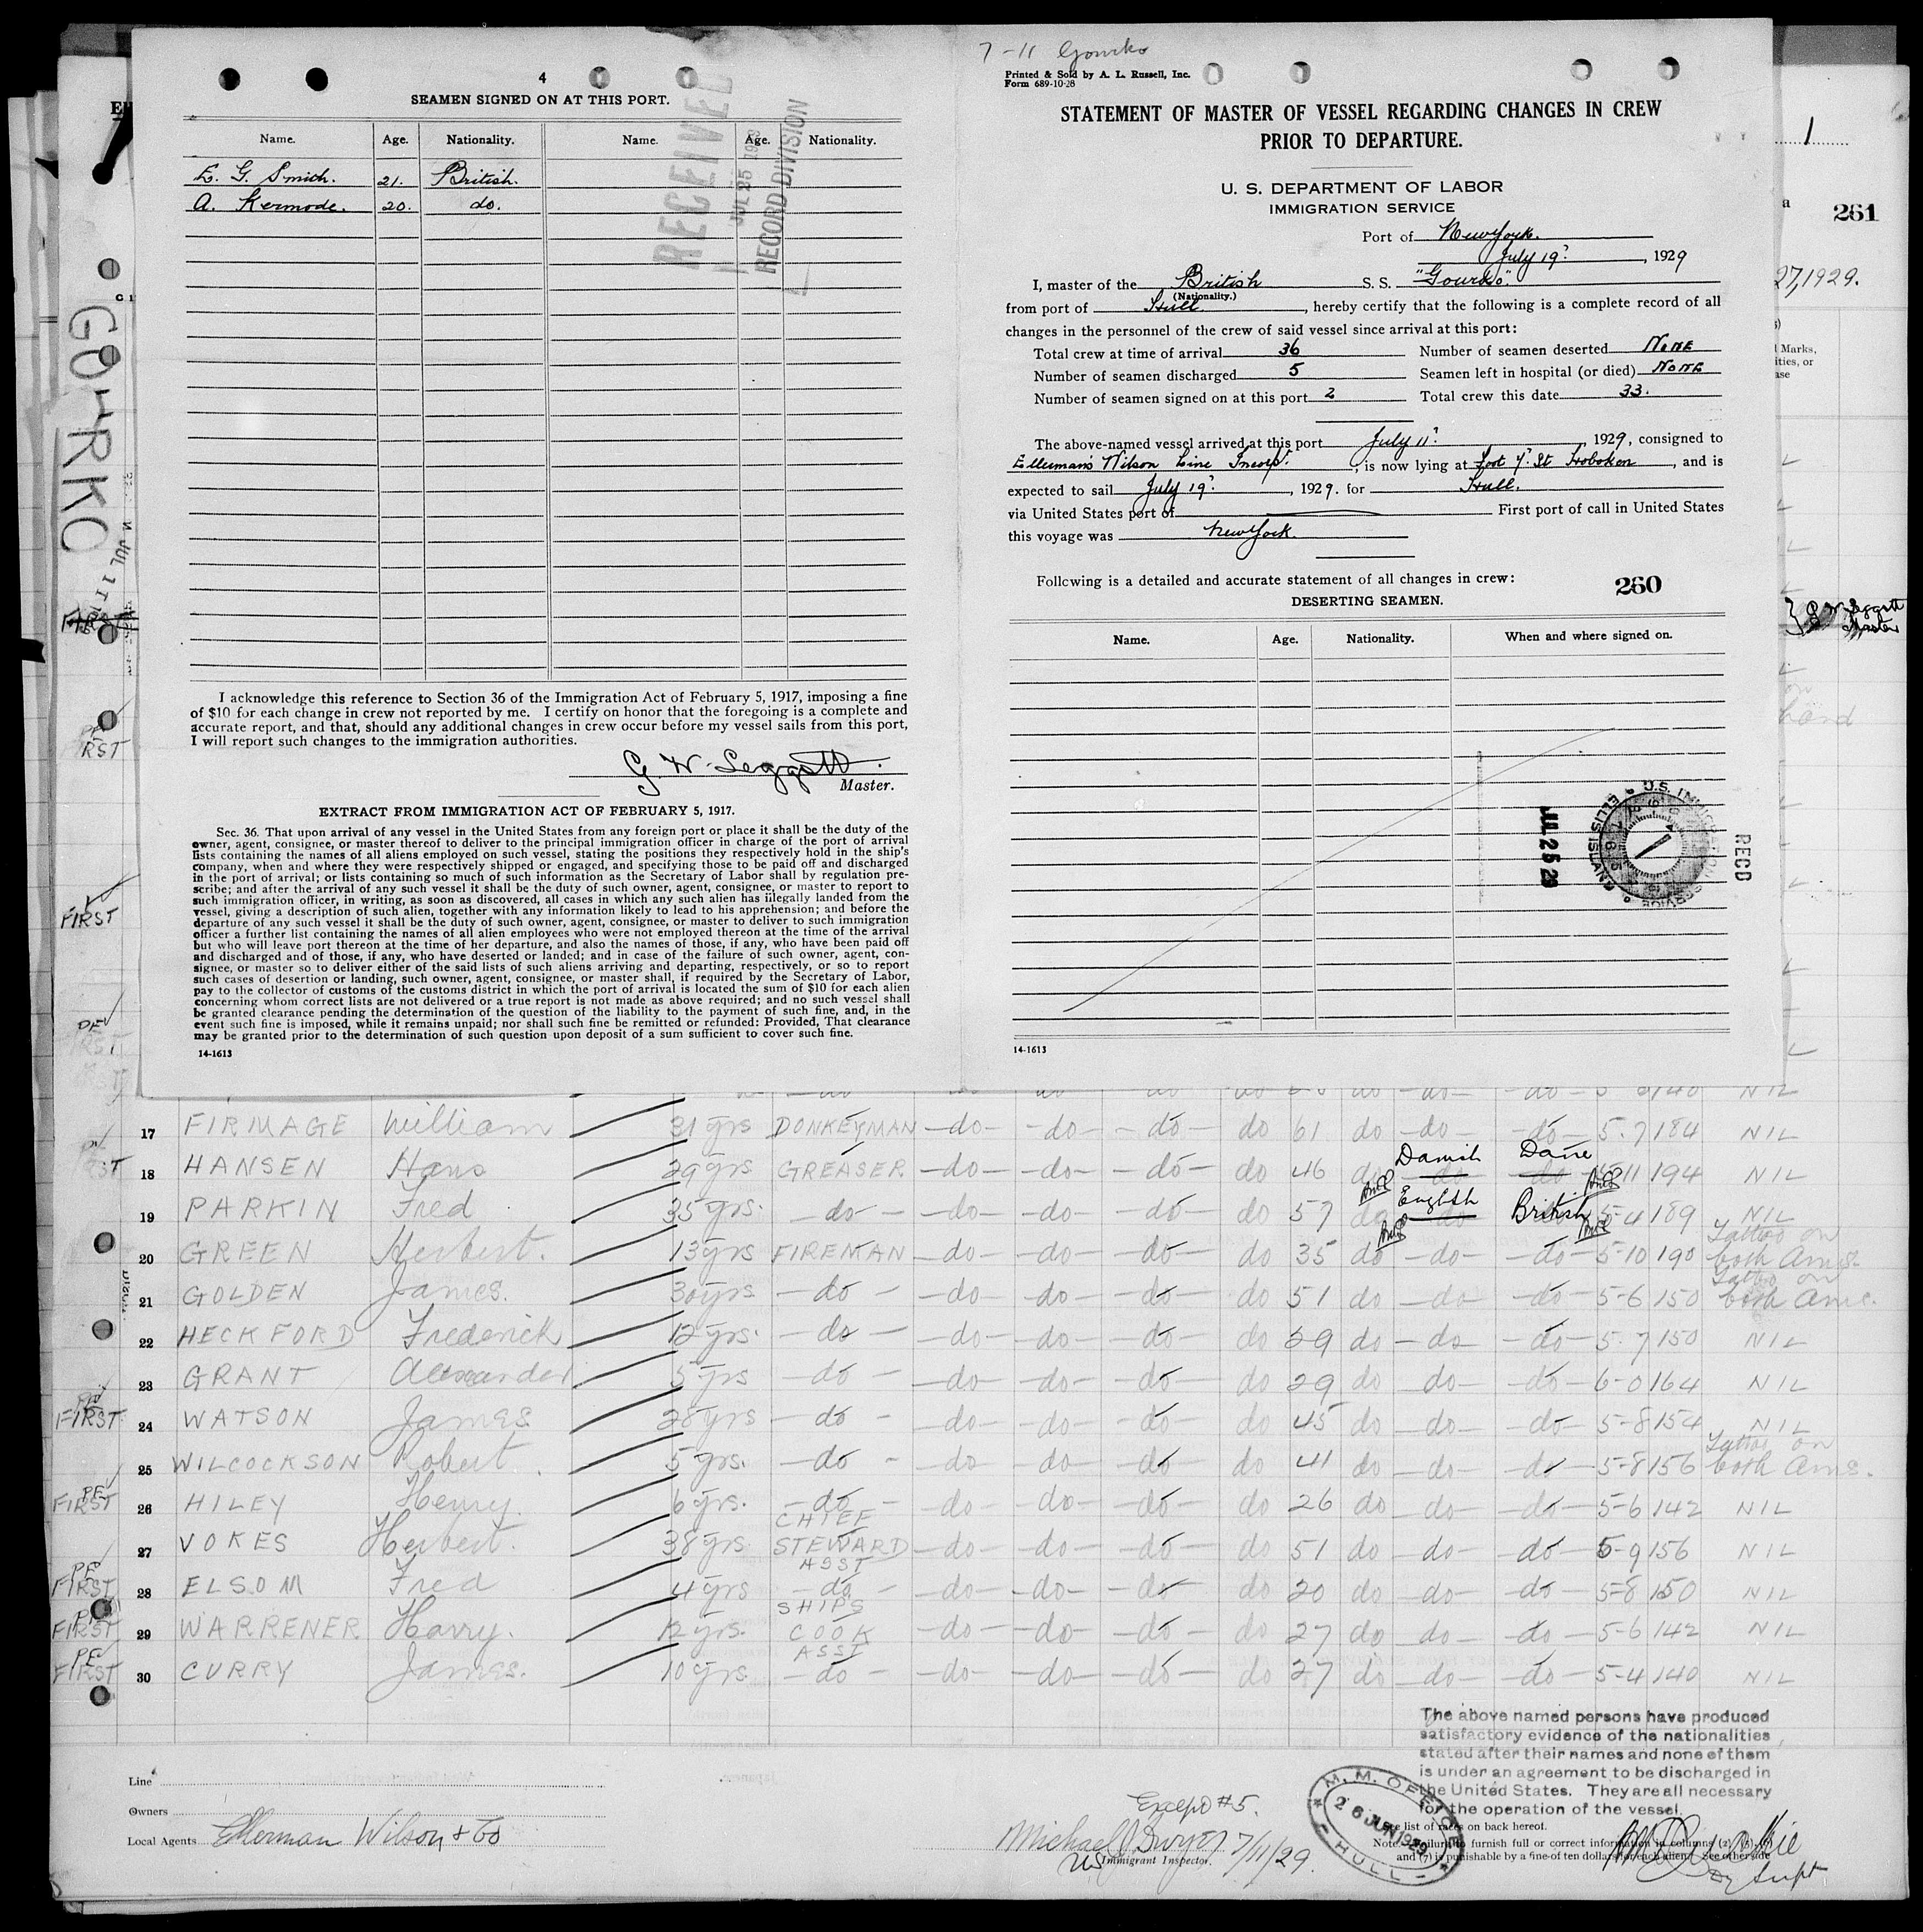 4
SEAMEN SIGNED ON AT THIS PORT.
Name. Age. Nationality. Name. Age. Nationality.
E. G. Smith. 21. British.
A. Kermode. 20. do.
RECEIVED
JUL 25
RECORD DIVISION
I acknowledge this reference to Section 36 of the Immigration Act of February 5, 1917, imposing a fine
of $10 for each change in crew not reported by me. I certify on honor that the foregoing is a complete and
accurate report, and that, should any additional changes in crew occur before my vessel sails from this port,
I will report such changes to the immigration authorities.
G. W. Leggott
Master.
EXTRACT FROM IMMIGRATION ACT OF FEBRUARY 5, 1917.
Sec. 36. That upon arrival of any vessel in the United States from any foreign port or place it shall be the duty of the
owner, agent, consignee, or master thereof to deliver to the principal immigration officer in charge of the port of arrival
lists containing the names of all aliens employed on such vessel, stating the positions they respectively hold in the ship's
company, when and where they were respectively shipped or engaged, and specifying those to be paid off and discharged
in the port of arrival; or lists containing so much of such information as the Secretary of Labor shall by regulation pre-
scribe; and after the arrival of any such vessel it shall be the duty of such owner, agent, consignee, or master to report to
such immigration officer, in writing, as soon as discovered, all cases in which any such alien has illegally landed from the
vessel, giving a description of such alien, together with any information likely to lead to his apprehension; and before the
departure of any such vessel it shall be the duty of such owner, agent, consignee, or master to deliver to such immigration
officer a further list containing the names of all alien employees who were not employed thereon at the time of the arrival
but who will leave port thereon at the time of her departure, and also the names of those, if any, who have been paid off
and discharged and of those, if any, who have deserted or landed; and in case of the failure of such owner, agent, con-
signee, or master so to deliver either of the said lists of such aliens arriving and departing, respectively, or so to report
such cases of desertion or landing, such owner, agent, consignee, or master shall, if required by the Secretary of Labor,
pay to the collector of customs of the customs district in which the port of arrival is located the sum of $10 for each alien
concerning whom correct lists are not delivered or a true report is not made as above required; and no such vessel shall
be granted clearance pending the determination of the question of the liability to the payment of such fine, and, in the
event such fine is imposed, while it remains unpaid; nor shall such fine be remitted or refunded: Provided, That clearance
may be granted prior to the determination of such question upon deposit of a sum sufficient to cover such fine.
14-1613
7-11 Gourko
Printed & Sold by A. L. Russell, Inc.
Form 689-10-28
STATEMENT OF MASTER OF VESSEL REGARDING CHANGES IN CREW
PRIOR TO DEPARTURE.
U. S. DEPARTMENT OF LABOR
IMMIGRATION SERVICE
Port of New York.
July 19th, 1929
I, master of the British S. S. "Gourko".
(Nationality.)
from port of Hull, hereby certify that the following is a complete record of all
changes in the personnel of the crew of said vessel since arrival at this port:
Total crew at time of arrival 36 Number of seamen deserted NONE
Number of seamen discharged 5 Seamen left in hospital (or died) NONE
Number of seamen signed on at this port 2 Total crew this date 33.
The above-named vessel arrived at this port July 11th, 1929, consigned to
Ellerman's Wilson Line Incorp., is now lying at Foot 7th St Hoboken, and is
expected to sail July 19th, 1929. for Hull.
via United States port of First port of call in United States
this voyage was New York.
Following is a detailed and accurate statement of all changes in crew: 260
DESERTING SEAMEN.
Name. Age. Nationality. When and where signed on.
JUL 25 29
U.S. IMMIGRATION SERVICE ELLIS ISLAND
RECD
14-1613
1
261
27, 1929.
Marks,
ities, or
ase
G W Leggott
Master
GOURKO
FIRST
17 FIRMAGE William 31 yrs DONKEYMAN -do- -do- -do- do 61 do -do- -do- 5-7 184 NIL
18 HANSEN Hans 29 yrs GREASER -do- -do- -do- do 46 do Danish Dane 5-11 194 NIL
19 PARKIN Fred 35 yrs. -do- -do- -do- -do- do 57 do English British 5-4 189 NIL
20 GREEN Herbert. 13 yrs FIREMAN -do- -do- -do- do 35 do -do- -do- 5-10 190 Tattoo on both Arms.
21 GOLDEN James. 30 yrs -do- -do- -do- -do- do 51 do -do- -do- 5-6 150 Tattoo on both Arms.
22 HECKFORD Frederick 12 yrs. -do- -do- -do- -do- do 29 do -do- -do- 5-7 150 NIL
23 GRANT Alexander 5 yrs -do- -do- -do- -do- do 29 do -do- -do- 6-0 164 NIL
FIRST 24 WATSON James 28 yrs -do- -do- -do- -do- do 45 do -do- -do- 5-8 154 NIL
25 WILCOCKSON Robert. 5 yrs. -do- -do- -do- -do- do 41 do -do- -do- 5-8 156 Tattoo on both Arms.
PF FIRST 26 HILEY Henry 6 yrs. -do- -do- -do- -do- do 26 do -do- -do- 5-6 142 NIL
27 VOKES Herbert. 38 yrs CHIEF STEWARD -do- -do- -do- do 51 do -do- -do- 5-9 156 NIL
PF FIRST 28 ELSOM Fred 4 yrs ASST -do- -do- -do- -do- do 20 do -do- -do- 5-8 150 NIL
PF FIRST 29 WARRENER Harry. 12 yrs. SHIPS COOK -do- -do- -do- do 27 do -do- -do- 5-6 142 NIL
PF FIRST 30 CURRY James. 10 yrs ASST -do- -do- -do- -do- do 27 do -do- -do- 5-4 140 NIL
The above named persons have produced
satisfactory evidence of the nationalities
stated after their names and none of them
is under an agreement to be discharged in
the United States. They are all necessary
for the operation of the vessel.
Line
Owners
Local Agents Ellerman Wilson & Co
Except #5.
Michael J. Dwyer 7/11/29.
US Immigrant Inspector.
M. M. OFFICE
26 JUN 1929
HULL
See list of races on back hereof.
Note.—Failure to furnish full or correct information in columns (2) (5) (6)
and (7) is punishable by a fine of ten dollars for each alien. See other side
Dy Supt